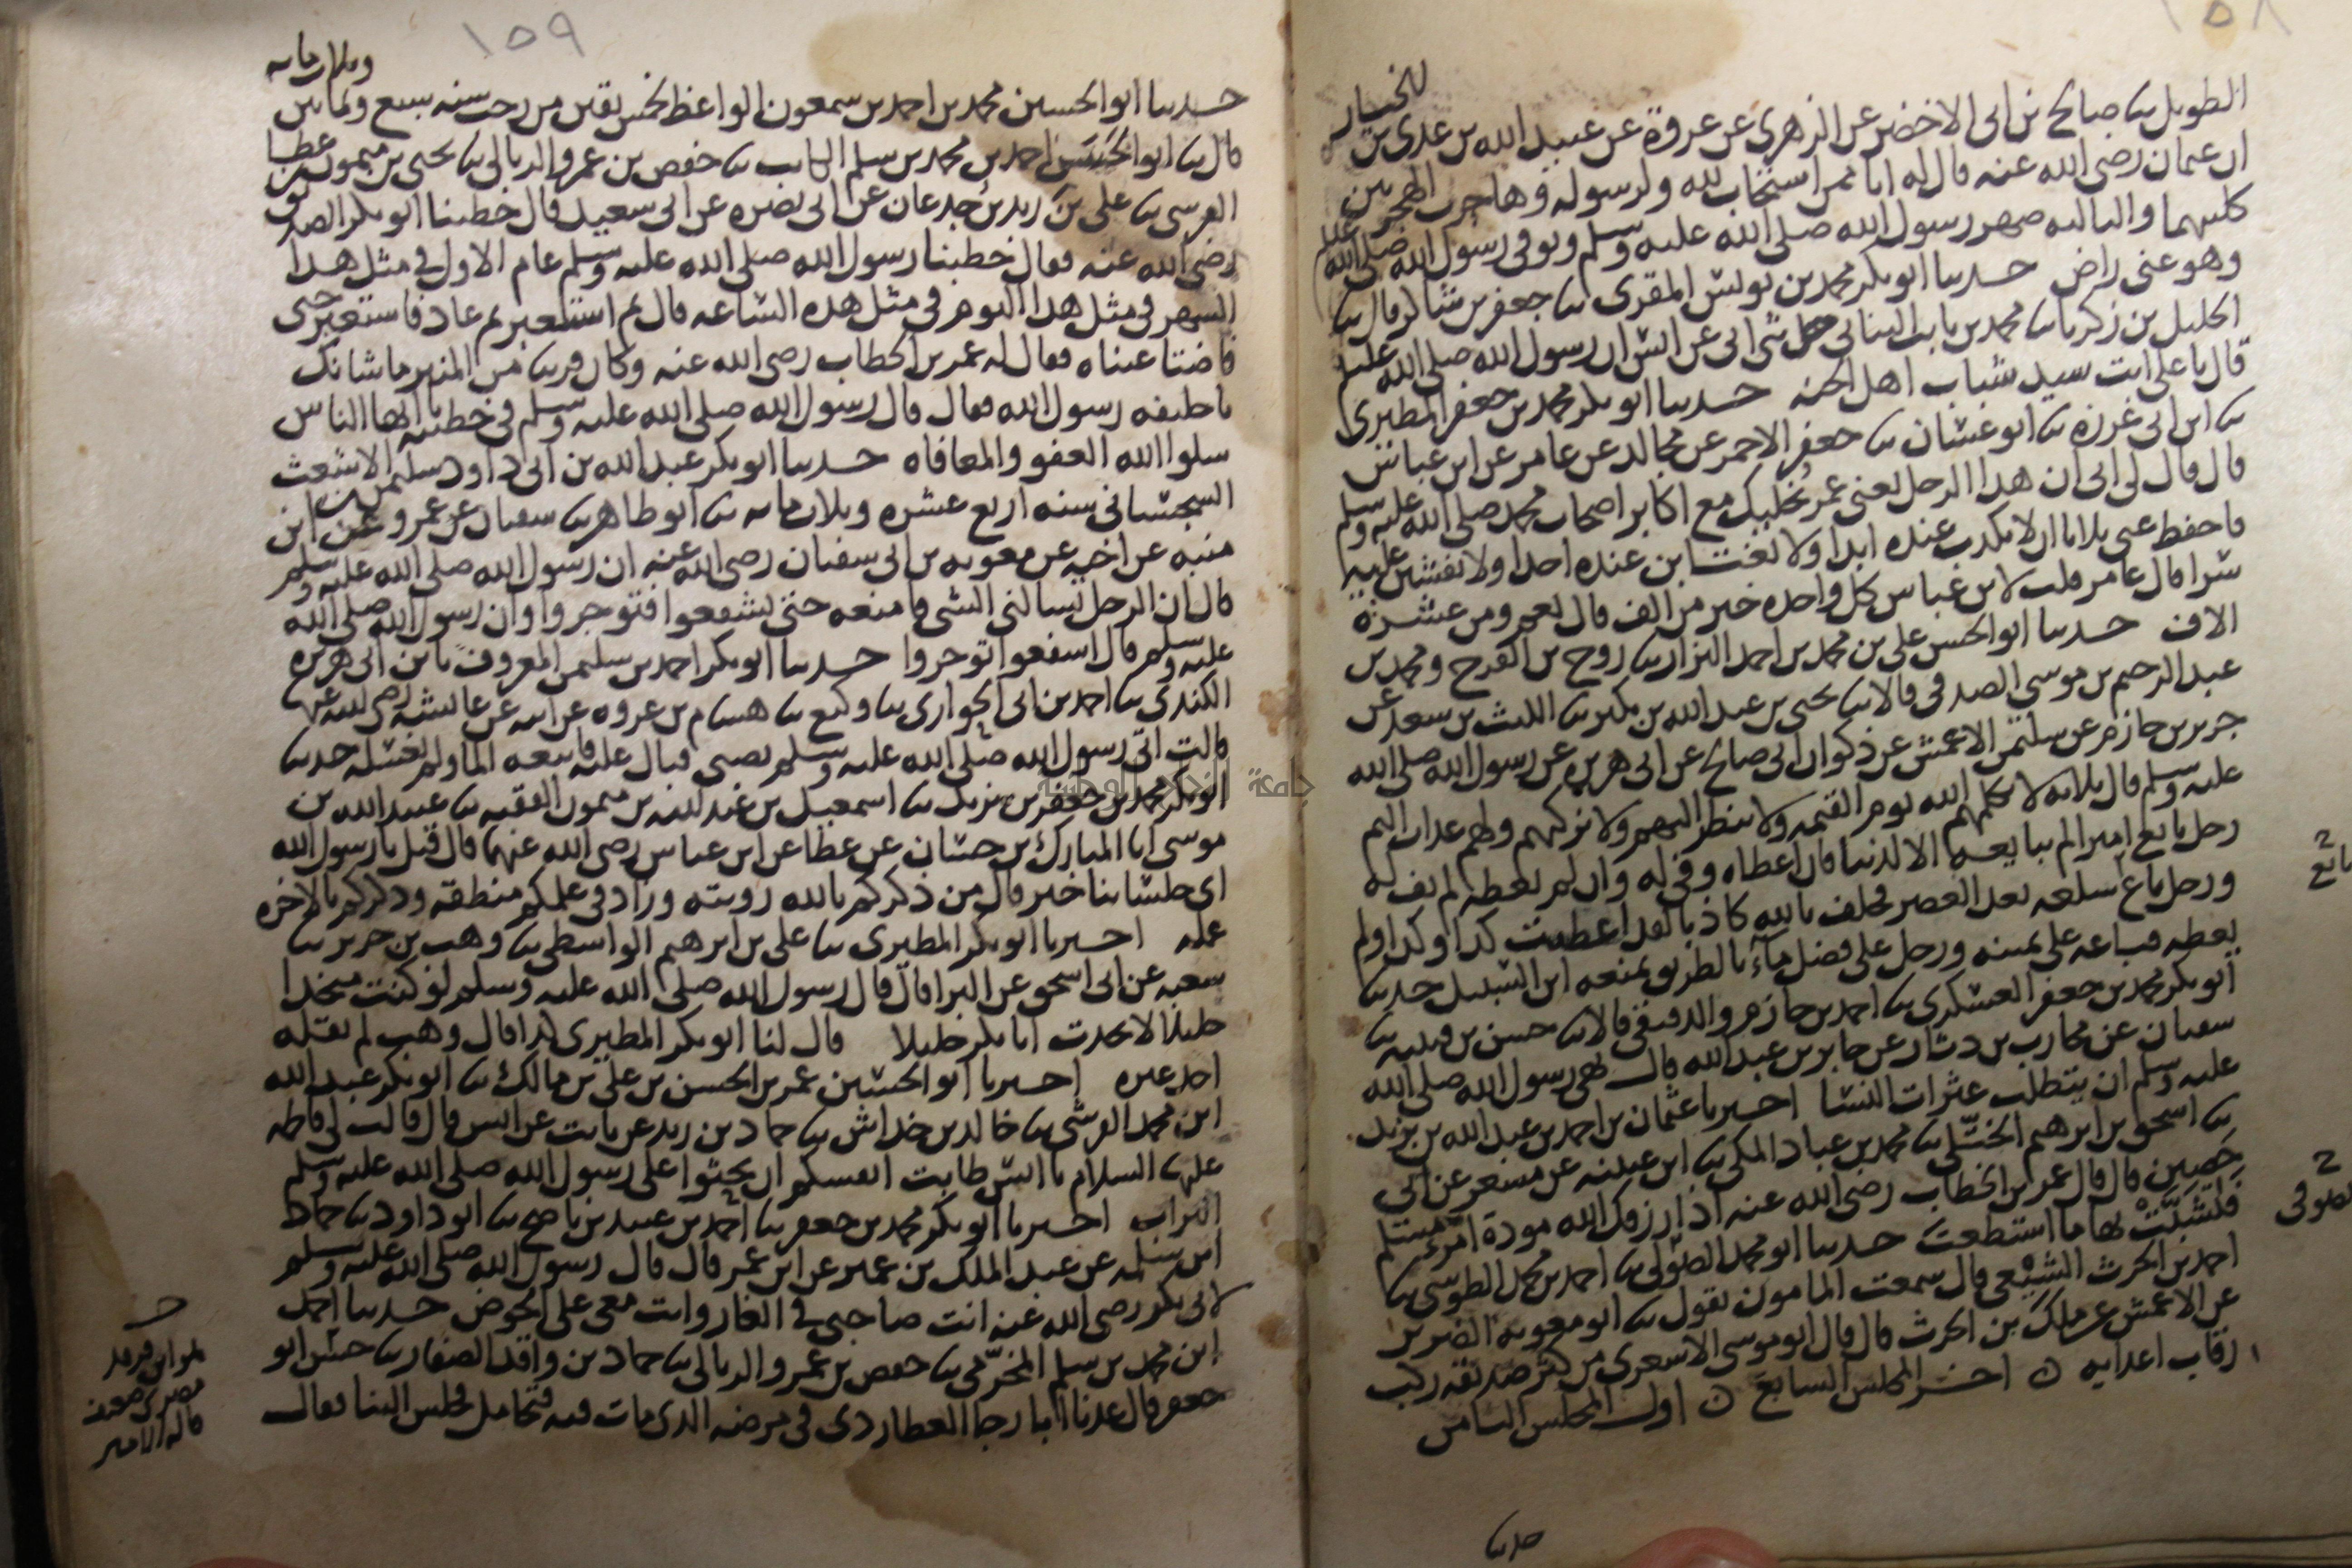 ١٥٨
الطويل ثنا صالح بن ابى الاخضر عن الزهرى عن عروة عن عبيد الله بن عدى بن الخيار
ان عثمان رضى الله عنه قال له انا ممن استجاب لله ولرسوله وهاجرت الهجرتين
كلتيهما ونلت صهر رسول الله صلى الله عليه وسلم وتوفى رسول الله صلى الله عليه وسلم
وهو عنى راض حدثنا ابو بكر محمد بن يونس المقرى ثنا جعفر بن شاكر قال ثنا
الخليل بن زكريا ثنا محمد بن ثابت البنانى حدثنى ابى عن انس ان رسول الله صلى الله عليه
قال يا على انت سيد شباب اهل الجنه حدثنا ابو بكر محمد بن جعفر المطيرى
ثنا ابن ابى غرزه ثنا ابو غسان ثنا جعفر الاحمر عن مجالد عن عامر عن ابن عباس
قال قال لى ابى ان هذا الرجل يعنى عمر يخليك مع اكابر اصحاب محمد صلى الله عليه وسلم
فاحفظ عنى ثلاثا ان لا تكذب عنده ابدا ولا تغتابن عنده احدا ولا تفشين عليه
سرا قال عامر قلت لابن عباس كل واحده خير من الف قال نعم ومن عشرة
الاف حدثنا ابو الحسن على بن محمد بن احمد البزار ثنا روح بن الفرح ومحمد بن
عبد الرحيم بن موسى الصدفى قالا ثنا يحيى بن عبد الله بن بكير ثنا الليث بن سعد عن
جرير بن حازم عن سليمن الاعمش عن ذكوان ابى صالح عن ابى هريره عن رسول الله صلى الله
عليه وسلم قال ثلاثه لا يكلمهم الله يوم القيمه ولا ينظر اليهم ولا يزكيهم ولهم عذاب اليم
رجل بايع اميرا لم يبايعه الا لدنيا فان اعطاه وفى له وان لم يعطه لم يف له
ورجل باع سلعه بعد العصر فحلف بالله كاذبا لقد اعطيت كذا وكذا ولم
يعطه فباعه على يمينه ورجل على فضل ماء بالطريق يمنعه ابن السبيل حدثنا
ابو بكر محمد بن جعفر العسكرى ثنا احمد بن حازم والدقيقى قالا ثنا حسن بن قتيبه ثنا
سفيان عن محارب بن دثار عن جابر بن عبد الله قال نهى رسول الله صلى الله
عليه وسلم ان يتطلب عثرات النسا اخبرنا عثمان بن احمد بن عبد الله بن يزيد
ثنا اسحق بن ابرهيم الختلى ثنا محمد بن عباد المكى ثنا ابن عيينه عن مسعر عن ابى
حصين قال قال عمر ابن الخطاب رضى الله عنه اذا رزقك الله مودة امرء مسلم
فتشبث بها ما استطعت حدثنا ابو محمد الصولى ثنا احمد بن محمد الطوسى ثنا
احمد بن الحرث الشيعى قال سمعت المامون يقول ثنا ابو معويه الضرير
عن الاعمش عن ملك بن الحرث قال قال ابو موسى الاشعرى من كثر صديقه ركب
رقاب اعدايه ه اخر المجلس السابع ه اول المجلس الثامن
حدثنا
١٥٩
حدثنا ابو الحسين محمد بن احمد بن سمعون الواعظ لخمس بقين من رجب سنه سبع وثمانين وثلاثمايه
قال ثنا ابو الحسن احمد بن محمد بن سلم الكاتب ثنا حفص بن عمرو الربالى ثنا يحيى بن ميمون بن عطا
القرسى ثنا على بن زيد بن جدعان عن ابى نضره عن ابى سعيد قال خطبنا ابو بكر الصديق
رضى الله عنه فقال خطبنا رسول الله صلى الله عليه وسلم عام الاول فى مثل هذا
الشهر فى مثل هذا اليوم فى مثل هذه الساعه قال ثم استعبر ثم عاد فاستعبر حتى
فاضتا عيناه فقال له عمر بن الخطاب رضى الله عنه وكان قريب من المنبر ما شانك
يا خليفه رسول الله فقال قال رسول الله صلى الله عليه وسلم فى خطبته يا ايها الناس
سلوا الله العفو والمعافاه حدثنا ابو بكر عبد الله بن ابى داود سليمن بن الاشعث
السجستانى سنه اربع عشره وثلاثمايه ثنا ابو طاهر ثنا سفيان عن عمرو عن ابن
منبه عن اخيه عن معويه بن ابى سفيان رضى الله عنه ان رسول الله صلى الله عليه وسلم
قال ان الرجل ليسالنى الشى فامنعه حتى تشفعوا فتوجروا وان رسول الله صلى الله
عليه وسلم قال اشفعوا توجروا حدثنا ابو بكر احمد بن سليمن المعروف بابن ابى هريره
الكندى ثنا احمد بن ابى الحوارى ثنا وكيع ثنا هشام بن عروه عن ابيه عن عايشه رضى الله عنها
قالت اتى رسول الله صلى الله عليه وسلم بصبى فبال عليه فاتبعه الما ولم يغسله حدثنا
ابو بكر محمد بن جعفر بن يزيد ثنا اسمعيل بن عبد الله بن ميمون الفقيه ثنا عبيد الله بن
موسى انا المبارك بن حسان عن عطا عن ابن عباس رضى الله عنهما قال قيل يا رسول الله
اى جلساينا خير قال من ذكركم بالله رويته وزاد فى علمكم منطقه وذكركم بالاخره
عمله اخبرنا ابو بكر المطيرى ثنا على بن ابرهيم الواسطى ثنا وهب بن جرير ثنا
شعبه عن ابى اسحق عن البرا قال قال رسول الله صلى الله عليه وسلم لو كنت متخذا
خليلا لاتخذت ابا بكر خليلا قال لنا ابو بكر المطيرى كذا قال وهب لم يقله
احد غيره اخبرنا ابو الحسين عمر بن الحسن بن على بن مالك ثنا ابو بكر عبد الله
ابن محمد القرشى ثنا خالد بن خداش ثنا حماد بن زيد عن ثابت عن انس قال قالت لى فاطمه
عليها السلام يا انس طابت انفسكم ان تحثوا على رسول الله صلى الله عليه وسلم
التراب اخبرنا ابو بكر محمد بن جعفر ثنا احمد بن عبيد بن ناصح ثنا ابو داود ثنا حماد
ابن سلمه عن عبد الملك بن عمير عن ابن عمر قال قال رسول الله صلى الله عليه وسلم
لابى بكر رضى الله عنه انت صاحبى فى الغار وانت معى على الحوض حدثنا احمد
ابن محمد بن سلم المخرمى ثنا حفص بن عمرو الربالى ثنا حماد بن واقد الصفار ثنا حسن ابو
جعفر قال عدنا ابا رجا العطاردى فى مرضه الذى مات فيه فتحامل فجلس الينا فقال
جامعة النجاح الوطنية